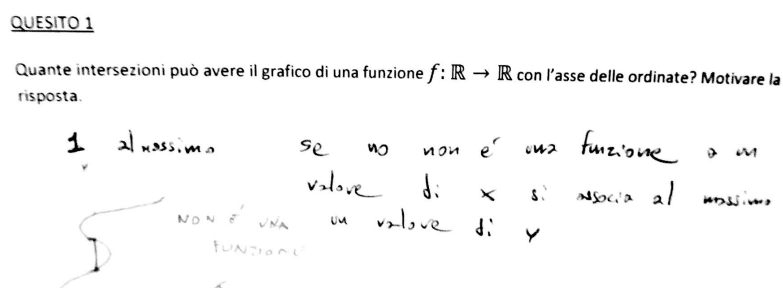 QUESITO 1
Quante intersezioni può avere il grafico di una funzione f: ℝ → ℝ con l'asse delle ordinate? Motivare la
risposta.
1 al massimo se no non é una funzione a un
valore di x si associa al massimo
un valore di y
NON É UNA
FUNZIONE